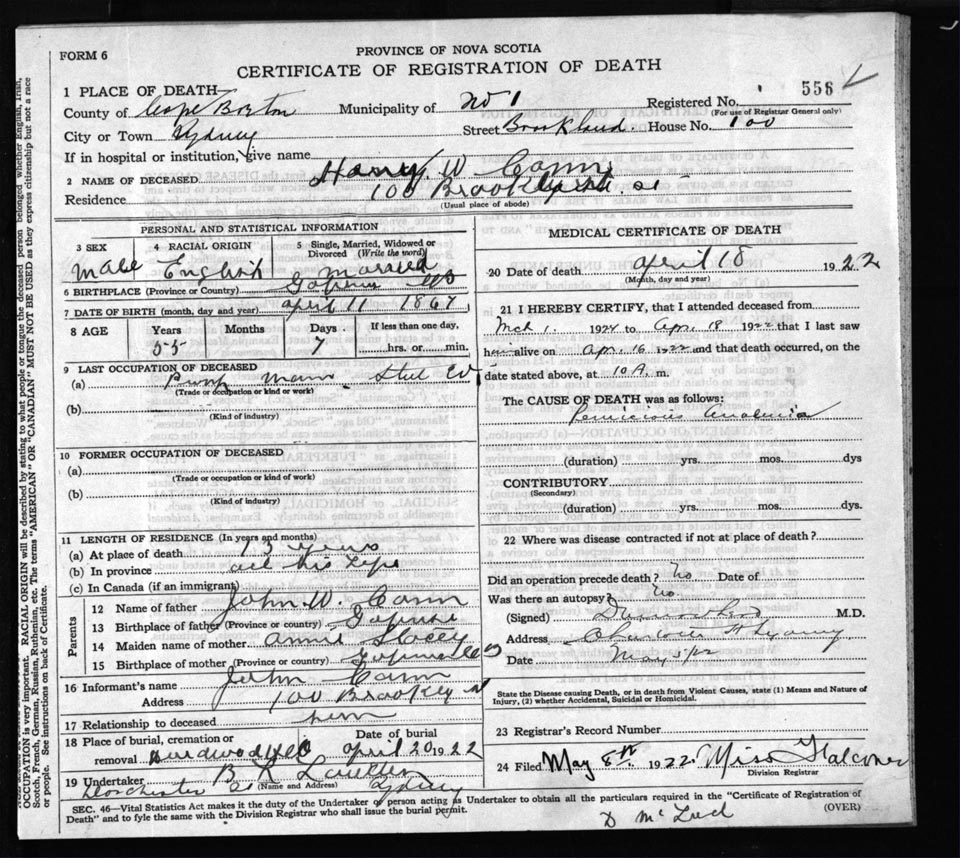 FORM 6
PROVINCE OF NOVA SCOTIA
CERTIFICATE OF REGISTRATION OF DEATH
556
1 PLACE OF DEATH—
County of Cape Breton Municipality of No 1 Registered No.
(For use of Registrar General only)
City or Town Sydney Street Brookland. House No. 100
If in hospital or institution, give name
2 NAME OF DECEASED Harry W Cann
Residence 100 Brookland st
(Usual place of abode)
PERSONAL AND STATISTICAL INFORMATION
3 SEX 4 RACIAL ORIGIN 5 Single, Married, Widowed or Divorced (Write the word)
Male English Married
6 BIRTHPLACE (Province or Country)
7 DATE OF BIRTH (month, day and year) april 11 1867
8 AGE Years Months Days If less than one day,
55 7 hrs. or min.
9 LAST OCCUPATION OF DECEASED
(a) Pump man Steel
(Trade or occupation or kind of work)
(b)
(Kind of industry)
10 FORMER OCCUPATION OF DECEASED
(a)
(Trade or occupation or kind of work)
(b)
(Kind of industry)
11 LENGTH OF RESIDENCE (In years and months)
(a) At place of death years
(b) In province all his Life
(c) In Canada (if an immigrant)
Parents
12 Name of father John W. Cann
13 Birthplace of father (Province or country)
14 Maiden name of mother Annie Stacey
15 Birthplace of mother (Province or country)
16 Informant's name John Cann
Address 100 Brookland
17 Relationship to deceased
18 Place of burial, cremation or removal Date of burial
Hardwood Hill April 20 1922
19 Undertaker B R
(Name and Address)
Dorchester St Sydney
MEDICAL CERTIFICATE OF DEATH
20 Date of death April 18 1922
(Month, day and year)
21 I HEREBY CERTIFY, that I attended deceased from
Mch 1. 1922 to Apr. 18 1922 that I last saw
h alive on Apr. 16 1922 and that death occurred, on the
date stated above, at 10 A. m.
The CAUSE OF DEATH was as follows:
Pernicious Anaemia
(duration) yrs. mos. dys
CONTRIBUTORY
(Secondary)
(duration) yrs. mos. dys.
22 Where was disease contracted if not at place of death?
Did an operation precede death? No Date of
Was there an autopsy? No
(Signed) M.D.
Address Charlotte St Sydney
Date May
State the Disease causing Death, or in death from Violent Causes, state (1) Means and Nature of
Injury, (2) whether Accidental, Suicidal or Homicidal.
23 Registrar's Record Number
24 Filed May 8th 1922 Miss Falconer
Division Registrar
SEC. 46—Vital Statistics Act makes it the duty of the Undertaker or person acting as Undertaker to obtain all the particulars required in the "Certificate of Registration of
Death" and to fyle the same with the Division Registrar who shall issue the burial permit. (OVER)
D McLeod
OCCUPATION is very important. RACIAL ORIGIN will be described by stating to what people or tongue the deceased person belonged whether English, Irish,
Scotch, French, German, Russian, Ruthenian, etc. The terms "AMERICAN" OR "CANADIAN" MUST NOT BE USED as they express citizenship but not a race
or people. See instructions on back of Certificate.